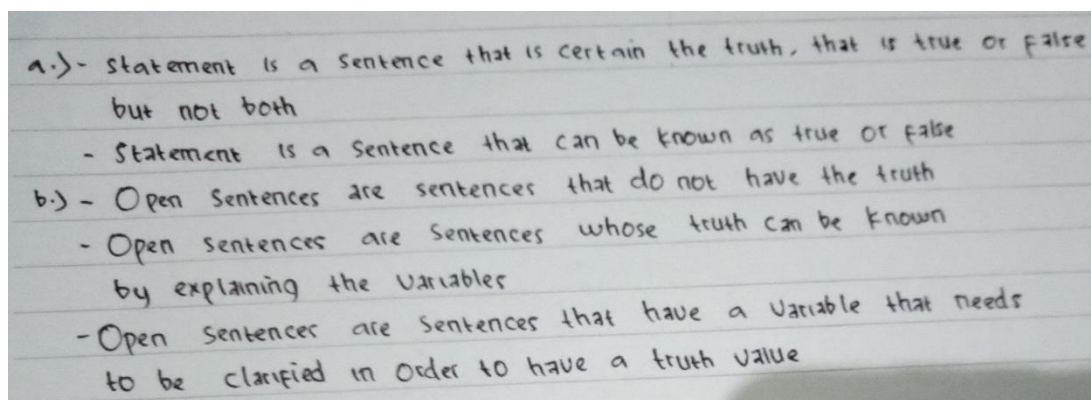 a.) - Statement is a sentence that is certain the truth, that is true or false
but not both
- Statement is a sentence that can be known as true or false
b.) - Open Sentences are sentences that do not have the truth
- Open sentences are sentences whose truth can be known
by explaining the variables
- Open sentences are sentences that have a variable that needs
to be clarified in order to have a truth value